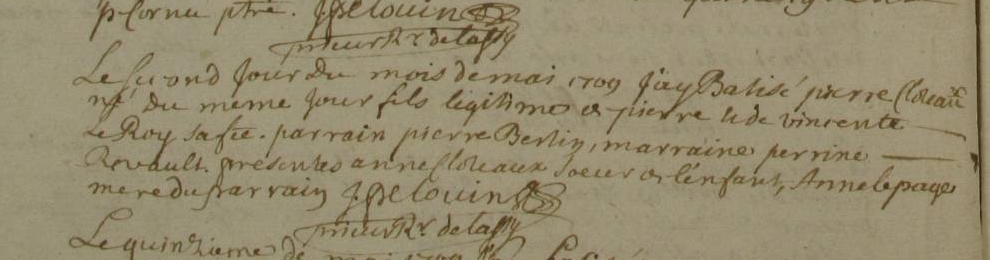 p Cornu ptre. J. Pelouin
prieur Rr de lassy
Le second jour du mois de mai 1709 j'ay Batisé pierre Cloteaux
né du meme jour fils legitime de pierre et de vincente
Le Roy sa fe. parrain pierre Bertin, marraine perrine
Revault. présentes anne Cloteaux soeur de l'enfant, Anne lepage
mere du parrain J. Pelouin
prieur Rr de lassy
Le quinzieme de mai 1709